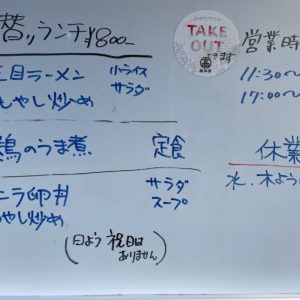 替りランチ¥800-
TAKE
OUT
できます
営業時
五目ラーメン 小ライス
もやし炒め サラダ
11:30〜
17:00〜
鶏のうま煮 定食
休業
ニラ卵丼 サラダ
もやし炒め スープ
水.木よう
(日よう祝日は
ありません)